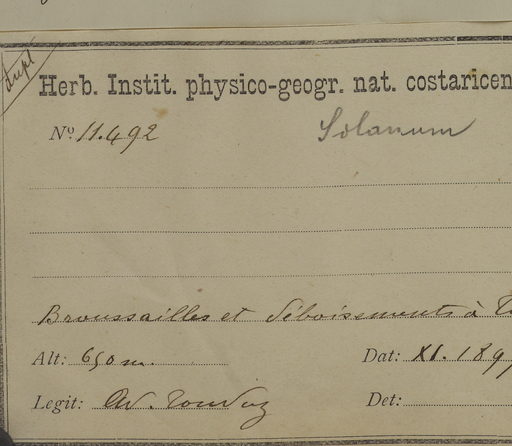 dupl
Herb. Instit. physico-geogr. nat. costaricen
Nº 11.492 Solanum
Broussailles et déboisements à
Alt: 650 m. Dat: XI. 189
Legit: Ad. Tonduz
Det: